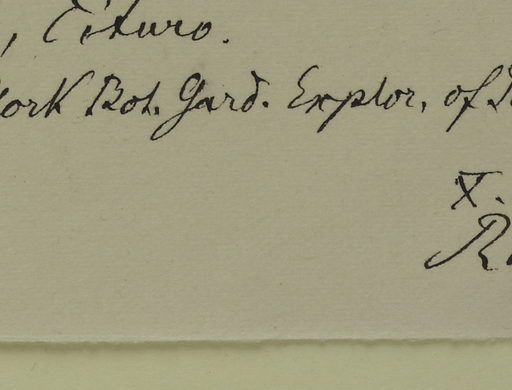 , Cituro.
York Bot. Gard. Explor. of
X.